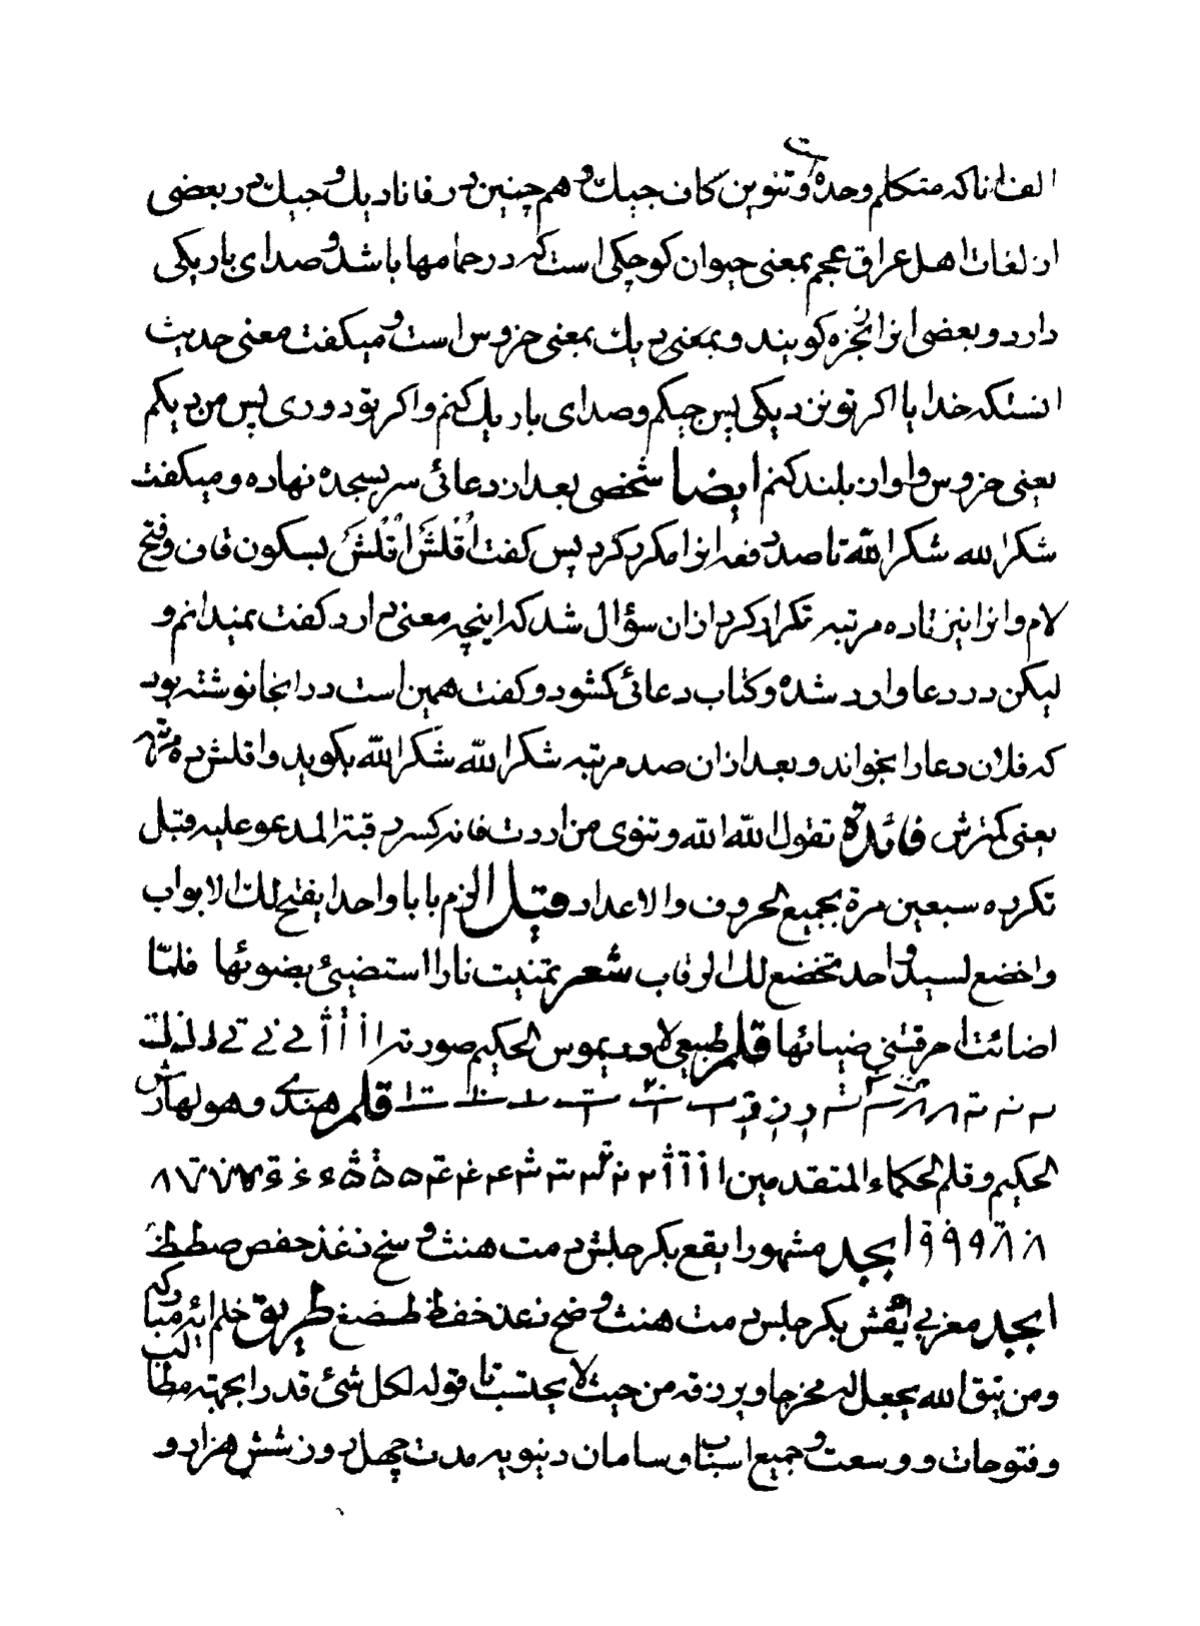 الف انا که متکلم وحده است و تنوین کاف جیك و هم چنین در فانا دیك و جیك در بعضی
از لغات اهل عراق عجم بمعنی حیوان کوچکی است که در حمامها باشد و صدای باریکی
دارد و بعضی انرا انجزه کویند و بمعنی دیك بمعنی خروس است و میکفت معنی حدیث
اینستکه خدایا اکر تو نزدیکی پس جیکم و صدای باریك کنم و اکر تو دوری پس من دیکم
یعنی خروس و اواز بلند کنم ایضا شخصی بعد از دعائی سر بسجده نهاده و میکفت
شکرا لله شکرا لله تا صد دفعه انرا مکرر کرد پس کفت اُقْلُشَ اُقْلُشَ بسکون قاف و فتح
لام و انرا نیز تا ده مرتبه تکرار کرد از ان سؤال شد که اینچه معنی دارد کفت نمیدانم و
لیکن در دعا وارد شده و کتاب دعائی کشود و کفت همین است در انجا نوشته بود
که فلان دعا را بخواند و بعد از ان صد مرتبه شکرا لله شکرا لله بکوید و اقلش ده مرتبه
یعنی کمترش فائدة تقول الله الله و تنوی من اردت فانه کسر رقبة المدعو علیه قبل
تکرده سبعین مرة بجمیع الحروف و الاعداد قیل الزم بابا واحدا یفتح لك الابواب
واخضع لسید واحد تخضع لك الرقاب شعر تمنیت نارا استضیئ بضوئها فلمّا
اضائت احرقتنی ضیائها قلم طبیعی لا الحکیم صورته ا
قلم هندی و هو لهارش
الحکیم و قلم الحکماء المتقدمین
ابجد مشهور ایقع بکر جلش دمت هنث وسخ زعذ حفض صطظ
ابجد مغربی ایقش بکر جلس دمت هنث وضح زعذ حفظ طضغ طریق ختم ایه مبارکه
ومن یتق الله یجعل له مخرجا ویرزقه من حیث لا یحتسب تا قوله لکل شئ قدرا بجهته مطالب
و فتوحات و وسعت و جمیع اسباب و سامان دنیویه مدت چهل روز شش هزار و